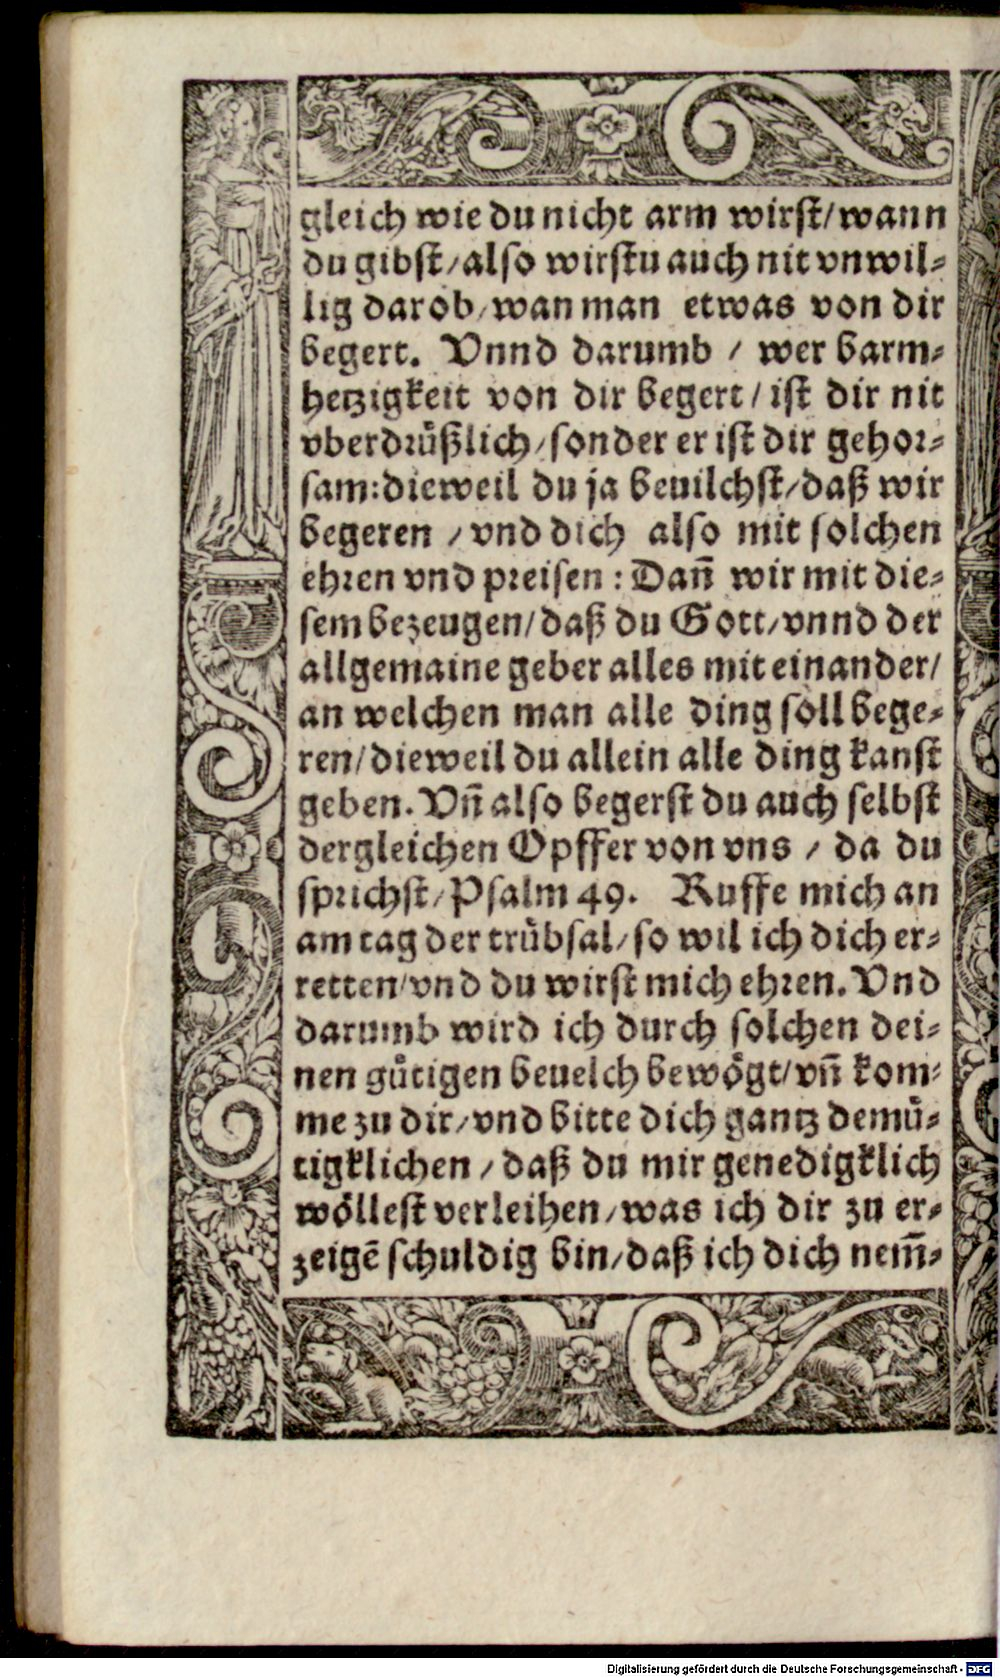 gleich wie du nicht arm wirst/ wann
du gibst/ also wirstu auch nit vnwil-
lig darob/ wan man etwas von dir
begert. Vnnd darumb / wer barm-
hetzigkeit von dir begert / ist dir nit
vberdrůßlich/ sonder er ist dir gehor-
sam: dieweil du ja beuilchst/ daß wir
begeren / vnd dich also mit solchen
ehren vnd preisen : Dañ wir mit die-
sem bezeugen/ daß du Gott/ vnnd der
allgemaine geber alles mit einander/
an welchen man alle ding soll bege-
ren/ dieweil du allein alle ding kanst
geben. Vñ also begerst du auch selbst
dergleichen Opffer von vns / da du
sprichst/ Psalm 49. Ruffe mich an
am tag der trůbsal/ so wil ich dich er-
retten/ vnd du wirst mich ehren. Vnd
darumb wird ich durch solchen dei-
nen gůtigen beuelch bewögt/ vñ kom-
me zu dir/ vnd bitte dich gantz demů-
tigklichen / daß du mir genedigklich
wöllest verleihen/ was ich dir zu er-
zeigẽ schuldig bin/ daß ich dich nem̃-
Digitalisierung gefördert durch die Deutsche Forschungsgemeinschaft - DFG